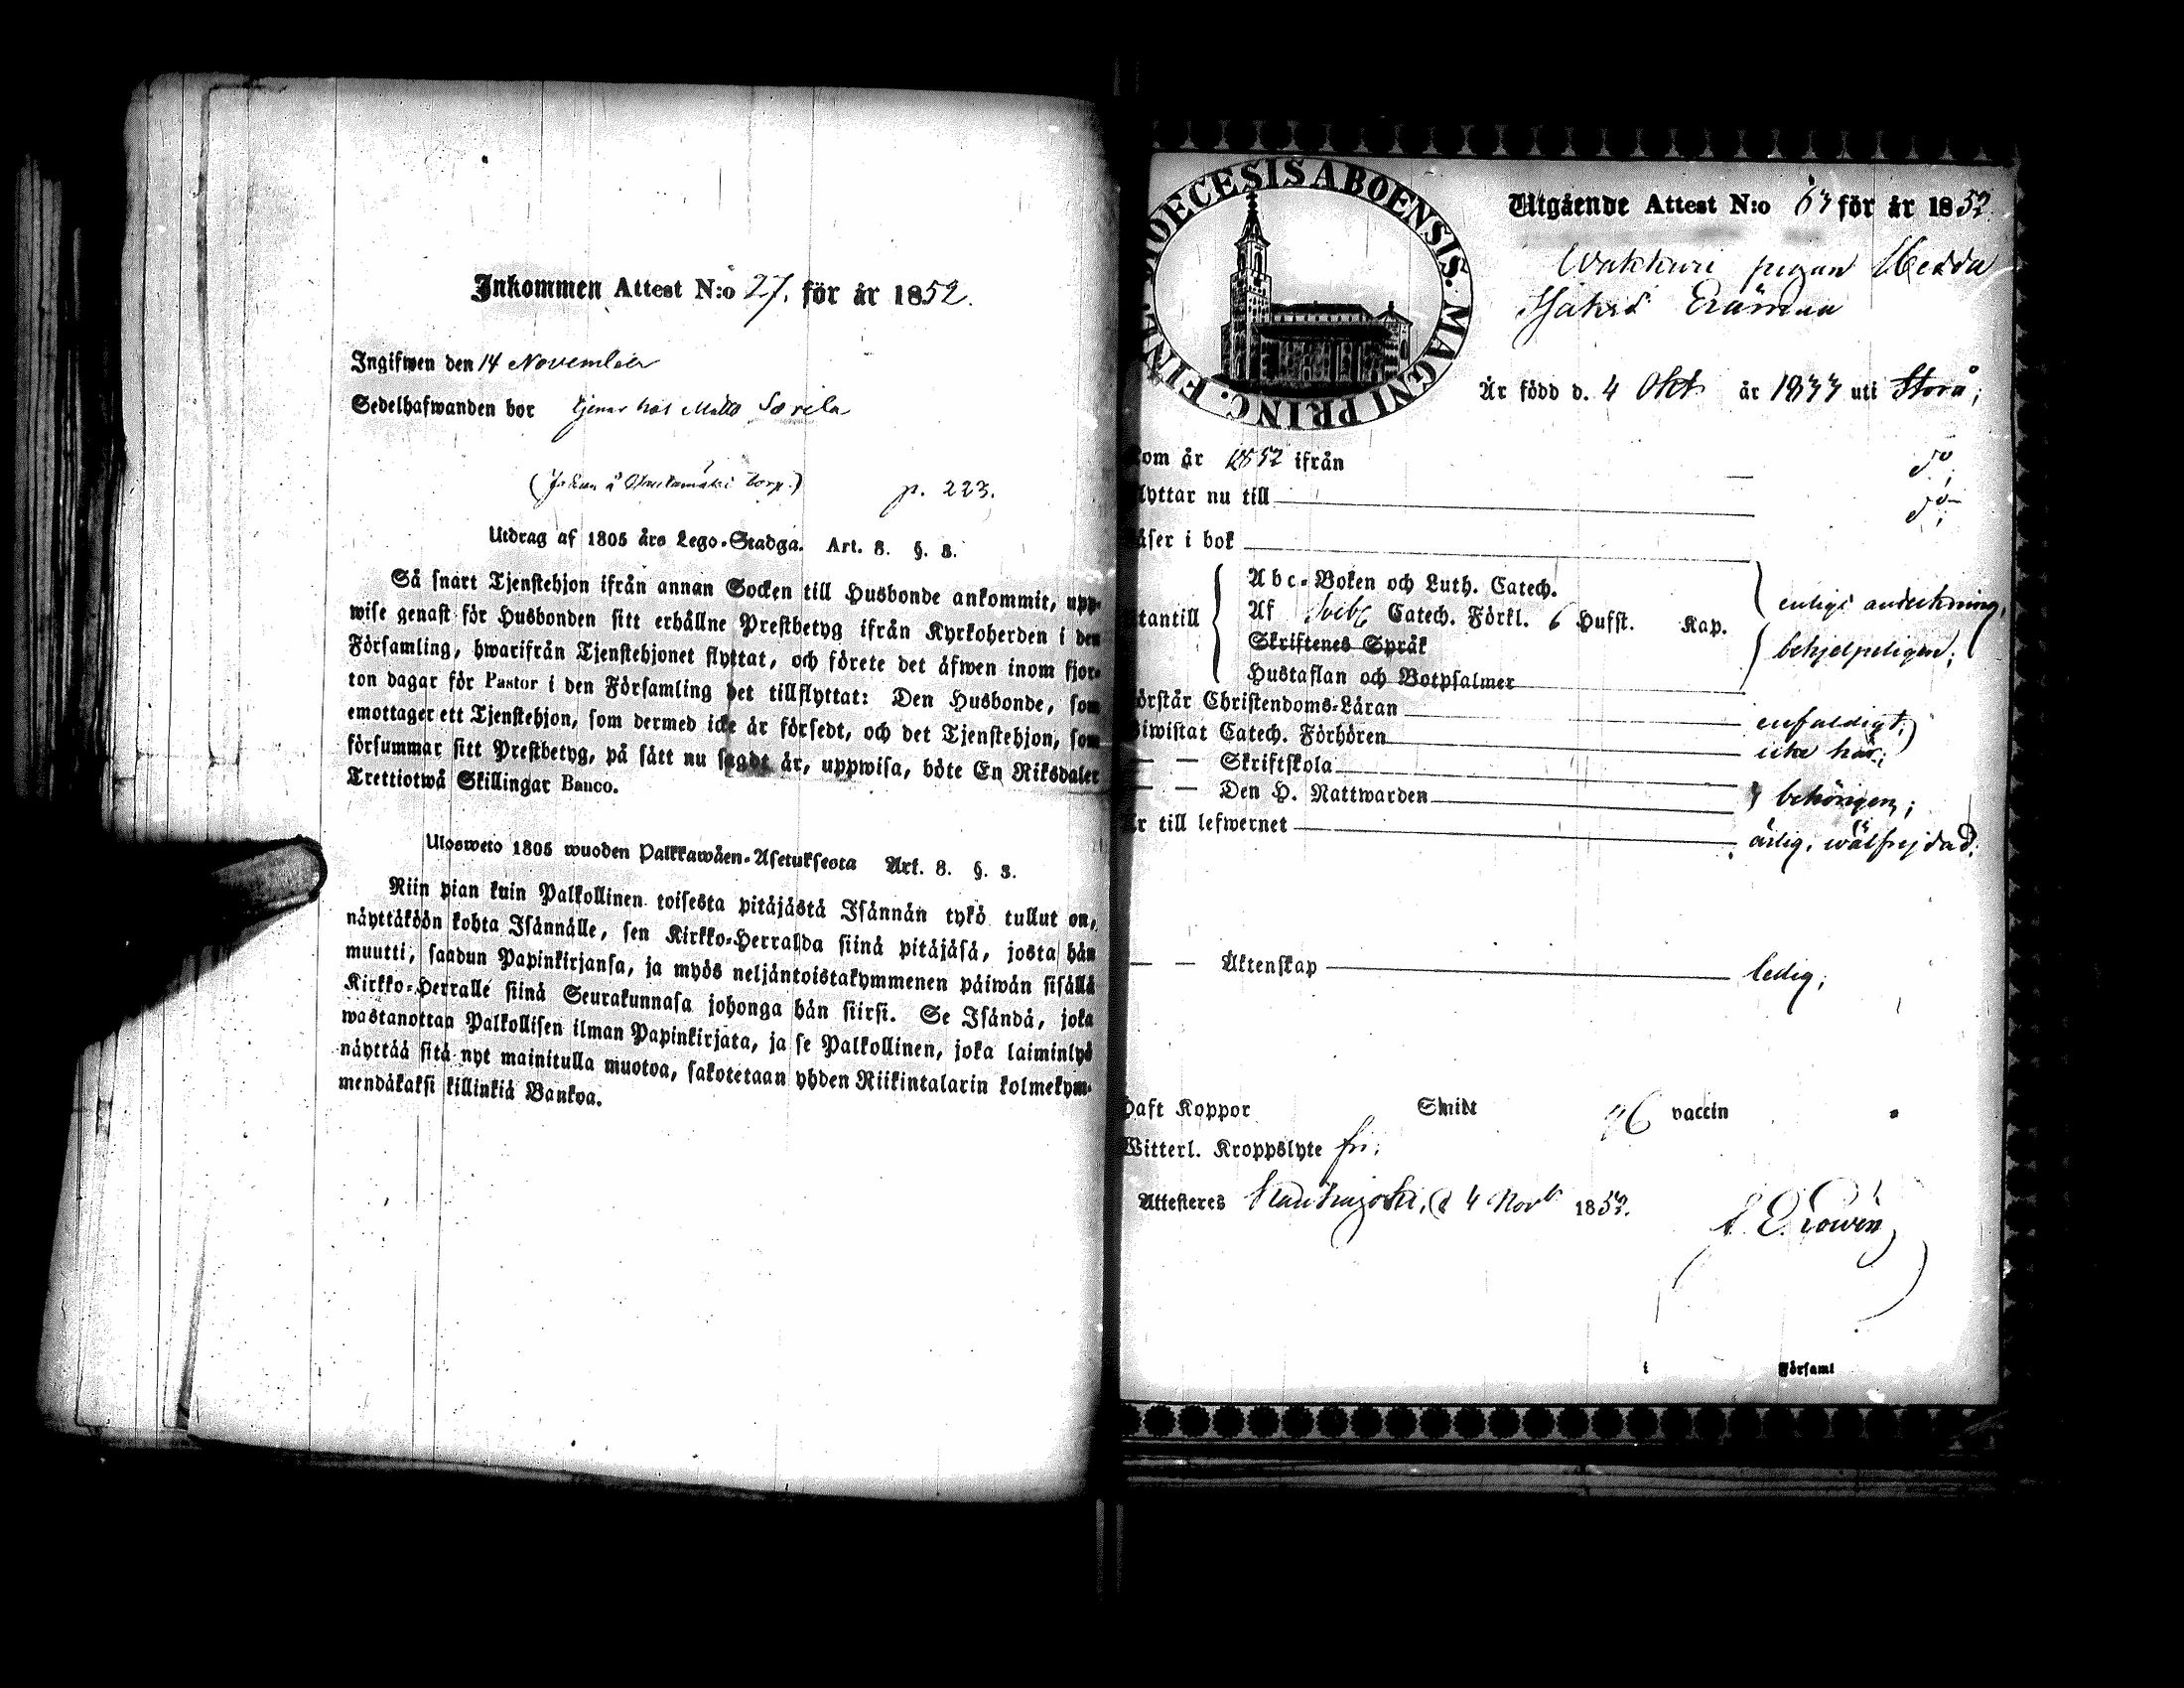 Inkommen Attest N:o 27. för år 1852.
Ingifwen den 14 November
Sedelhafwanden bor tjenar hos Matts Sorila
(Johan å torp.) p. 223.
Utdrag af 1805 års Lego-Stadga. Art. 8. §. 3.
Så snart Tjenstehjon ifrån annan Socken till Husbonde ankommit, upp-
wise genast för Husbonden sitt erhållne Prestbetyg ifrån Kyrkoherden i den
Församling, hwarifrån Tjenstehjonet flyttat, och förete det äfwen inom fjor-
ton dagar för Pastor i den Församling det tillflyttat: Den Husbonde, som
emottager ett Tjenstehjon, som dermed icke är försedt, och det Tjenstehjon, som
försummar sitt Prestbetyg, på sätt nu sagdt är, uppwisa, böte En Riksdaler
Trettiotwå Skillingar Banco.
Ulosweto 1805 wuoden Palkkawäen-Asetuksesta Art. 8. §. 3.
Niin pian kuin Palkollinen toisesta pitäjästä Isännän tykö tullut on,
näyttäköön kohta Isännälle, sen Kirkko-Herralda siinä pitäjäsä, josta hän
muutti, saadun Papinkirjansa, ja myös neljäntoistakymmenen päiwän sisällä
Kirkko-Herralle siinä Seurakunnasa johonga hän siirsi. Se Isändä, joka
wastanottaa Palkollisen ilman Papinkirjata, ja se Palkollinen, joka laiminlyö
näyttää sitä nyt mainitulla muotoa, sakotetaan yhden Riikintalarin kolmekym-
mendäkaksi killinkiä Bankoa.
DIOECESIS ABOENSIS. MAGNI PRINC. FINL.
Utgående Attest N:o 63 för år 1852.
pigan Hedda
Är född d. 4 Okt år 1833 uti Storå;
kom år 1852 ifrån do
flyttar nu till do;
läser i bok
utantill
Abc-Boken och Luth. Catech. enligt anteckning,
Af Svebe Catech. Förkl. 6 Hufst. Kap.
Skriftenes Språk behjelpeligen;
Hustaflan och Botpsalmer
förstår Christendoms-Läran enfaldigt;
Biwistat Catech. Förhören icke här;
— — Skriftskola
— — Den H. Nattwarden behörigen;
Är till lefwernet ärlig, wälfrejdad;
— — Äktenskap ledig;
Haft Koppor Smitt vaccin
Witterl. Kroppslyte fri;
Attesteres Kauhajoki, d 4 Novb 1852.
i Församl